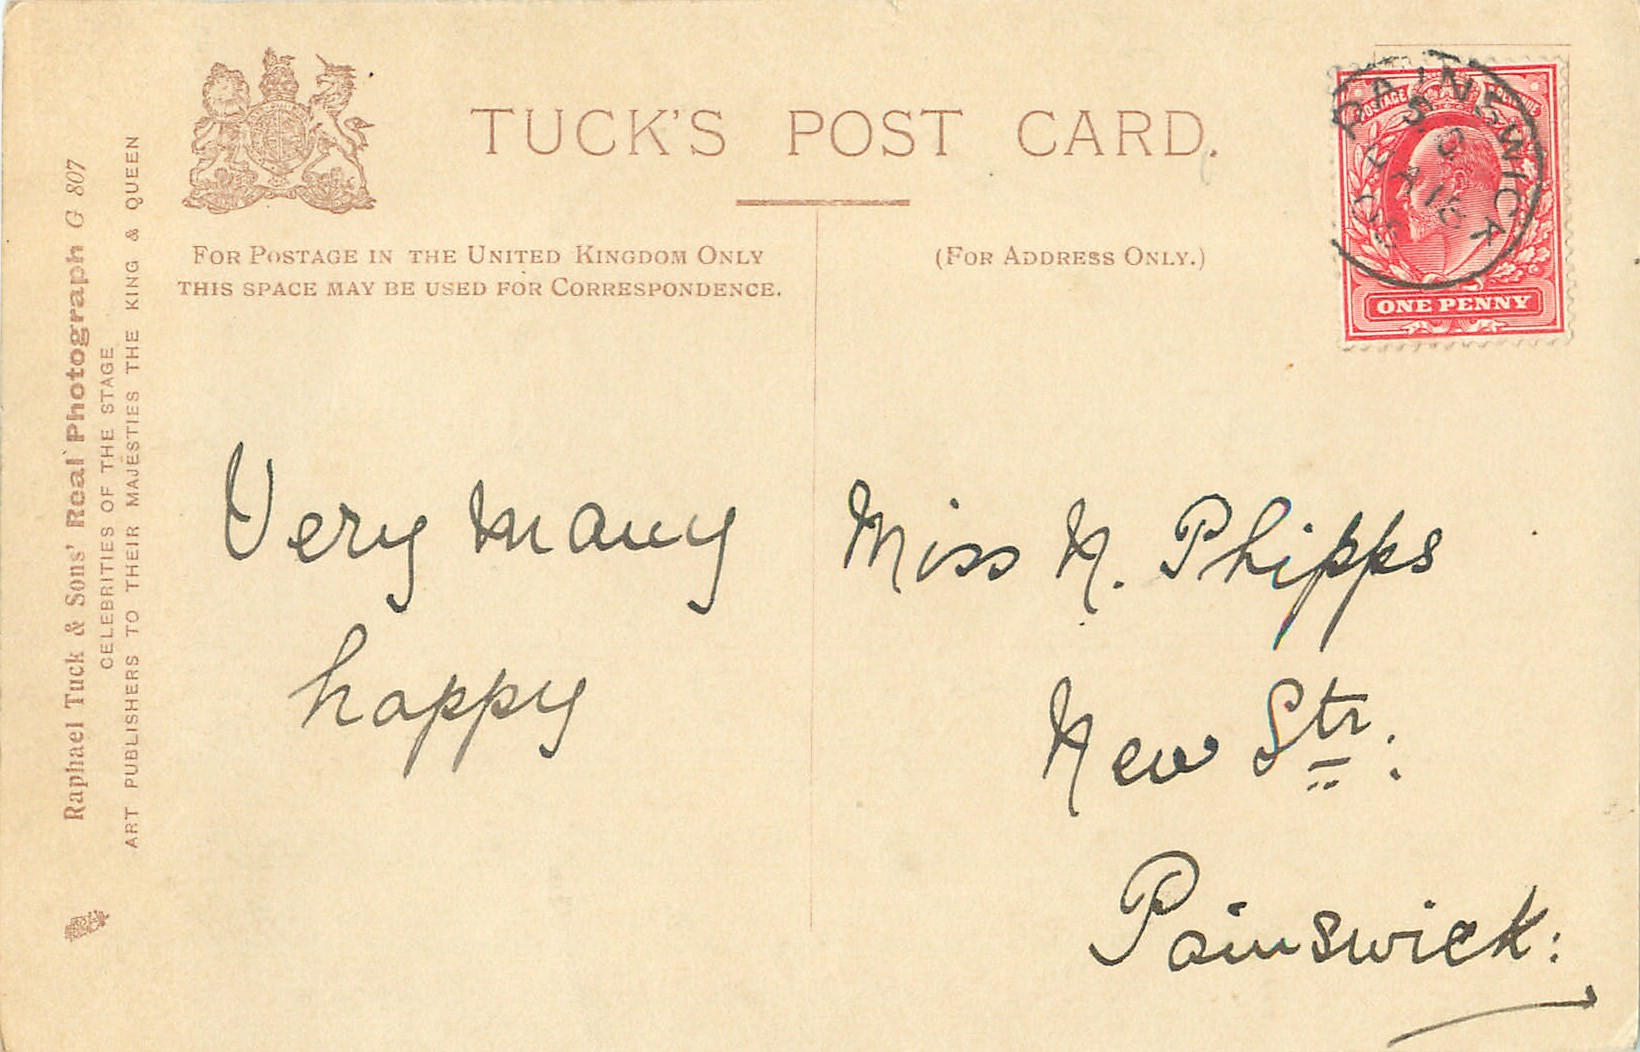 TUCK'S POST CARD.
FOR POSTAGE IN THE UNITED KINGDOM ONLY
THIS SPACE MAY BE USED FOR CORRESPONDENCE.
(FOR ADDRESS ONLY.)
Raphael Tuck & Sons' Real Photograph G 807
CELEBRITIES OF THE STAGE
ART PUBLISHERS TO THEIR MAJESTIES THE KING & QUEEN
POSTAGE
ONE PENNY
PAINSWICK
Very many
happy
Miss N. Phipps
New Str.
Painswick: